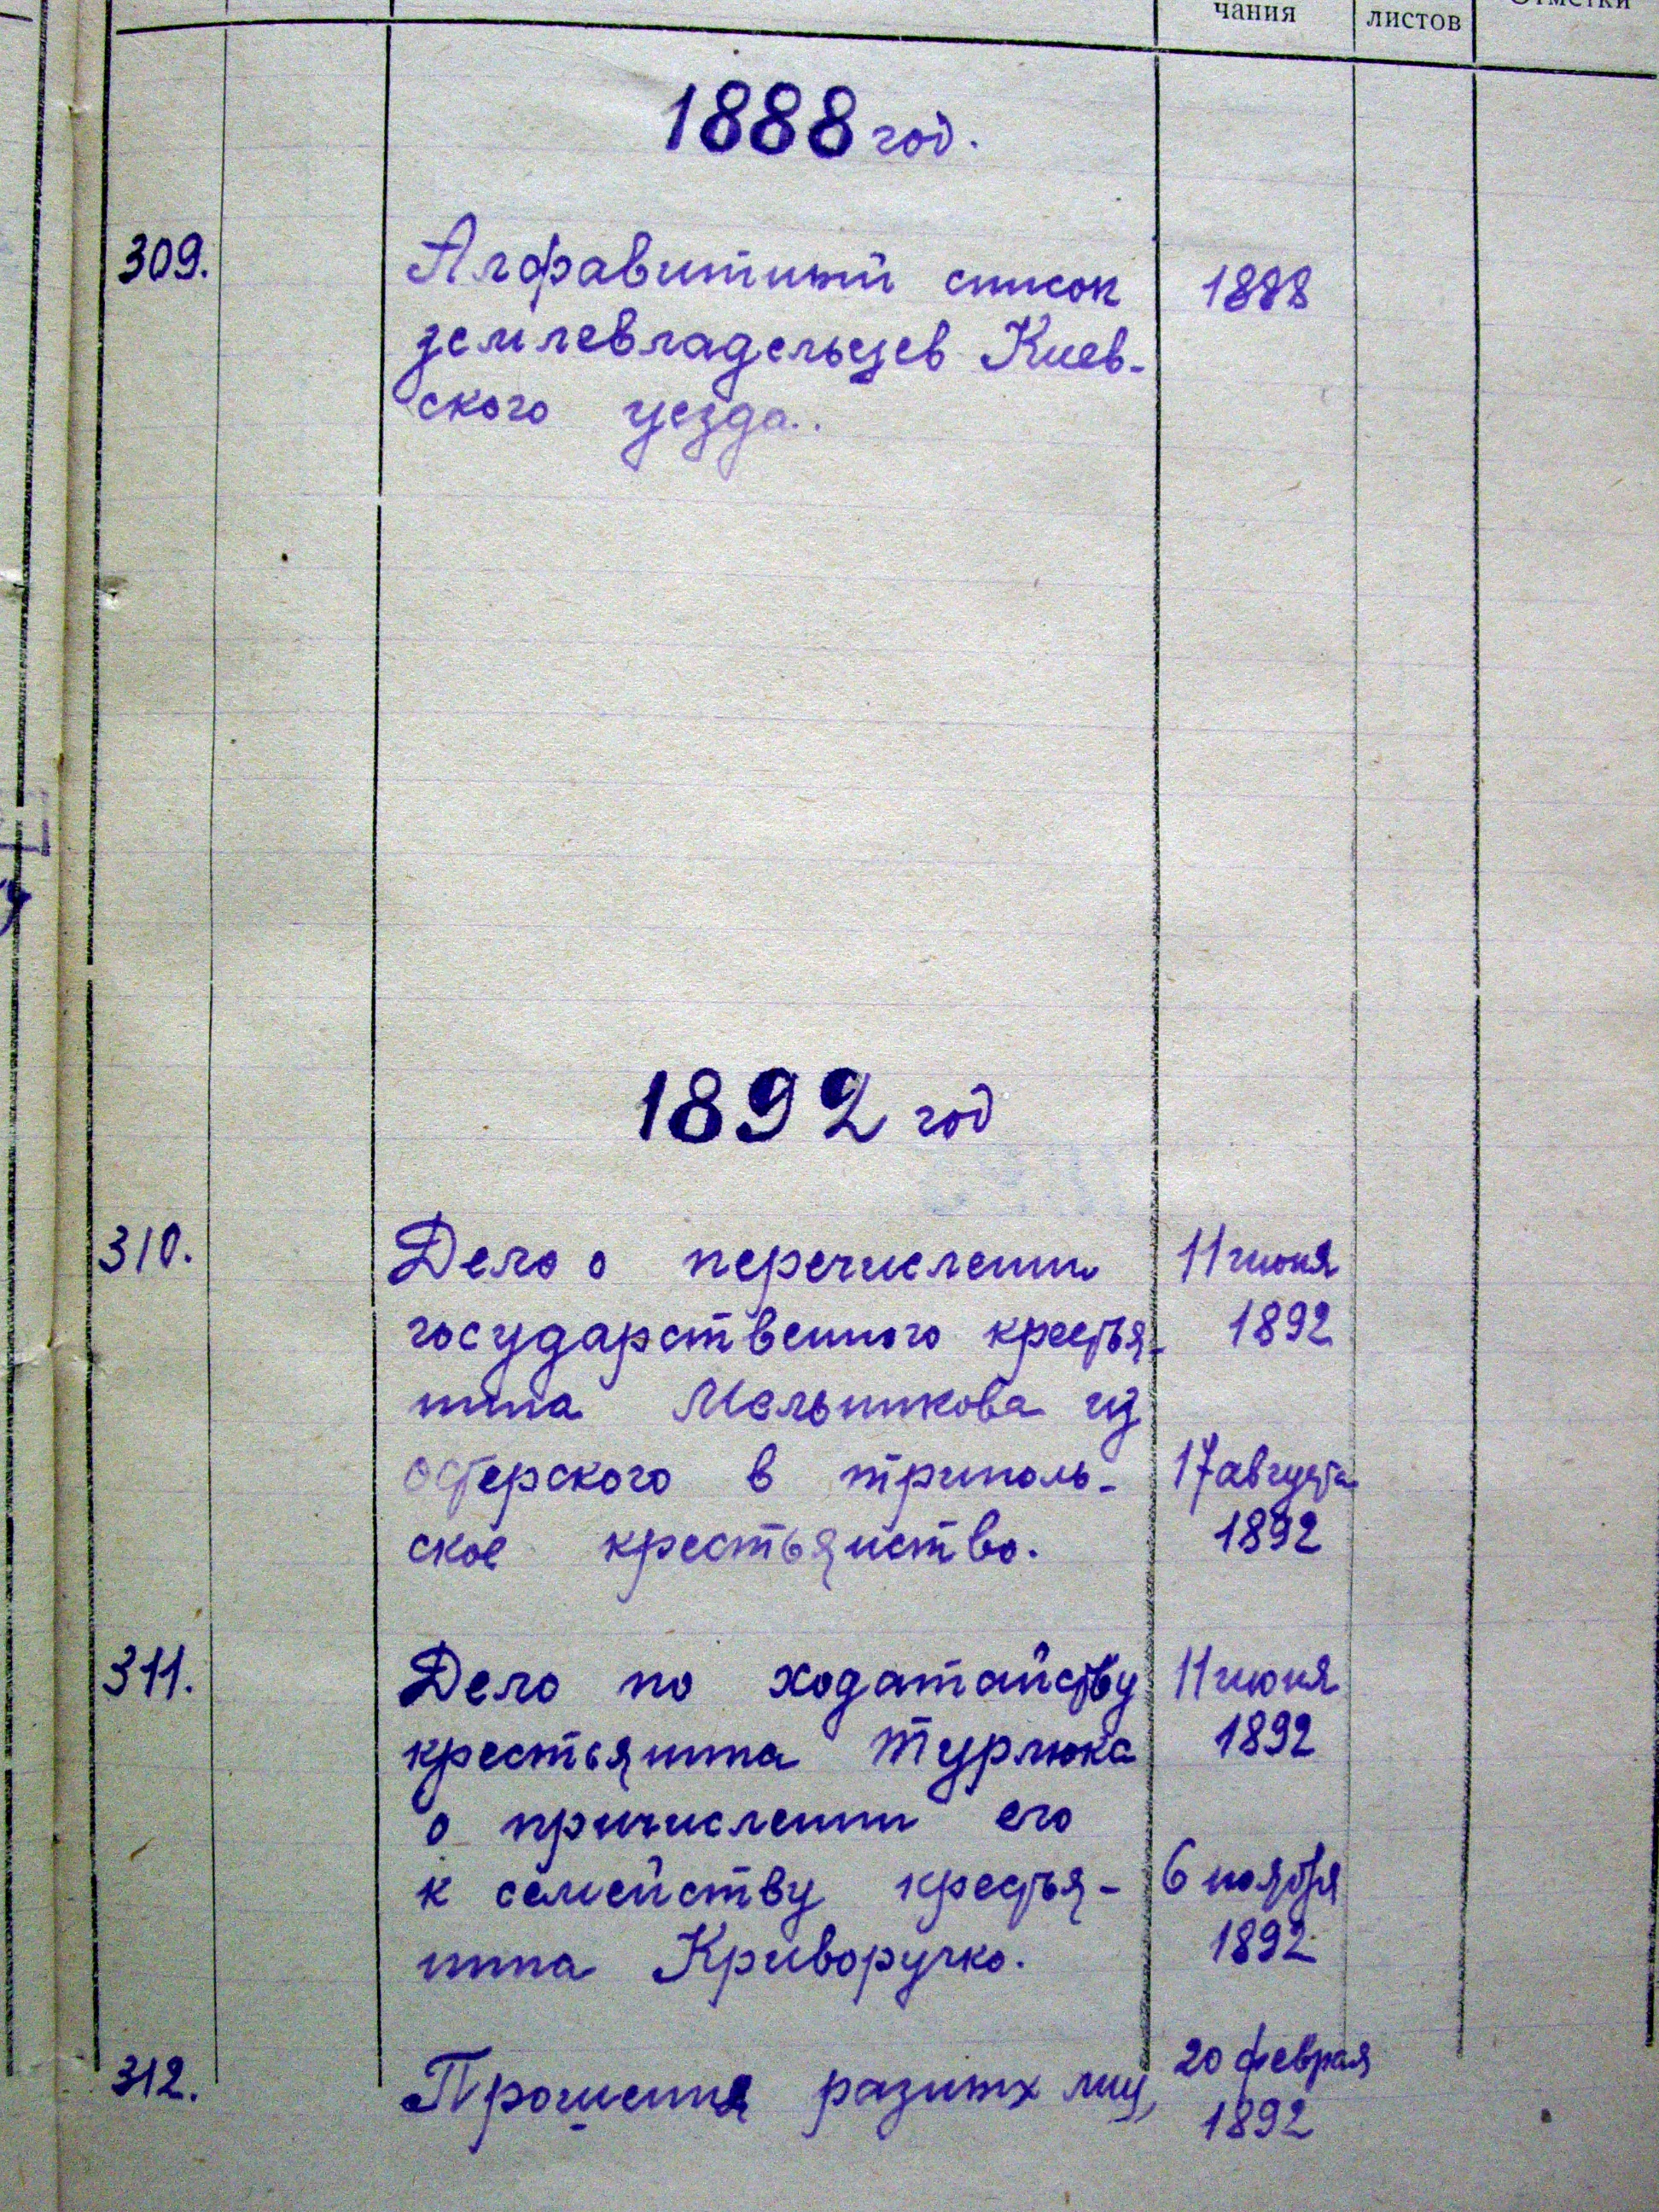 чания листов Отметки
1888 год.
309. Алфавитный список 1888
землевладельцев Киев-
ского уезда.
1892 год
310. Дело о перечислении 11 июня
государственного крестья- 1892
нина Мельникова из
остерского в триполь- 17 августа
ское крестьянство. 1892
311. Дело по ходатайству 11 июня
крестьянина Турлюка 1892
о причислении его
к семейству крестья- 6 ноября
нина Криворучко. 1892
312. Прошения разных лиц, 20 феврая
1892